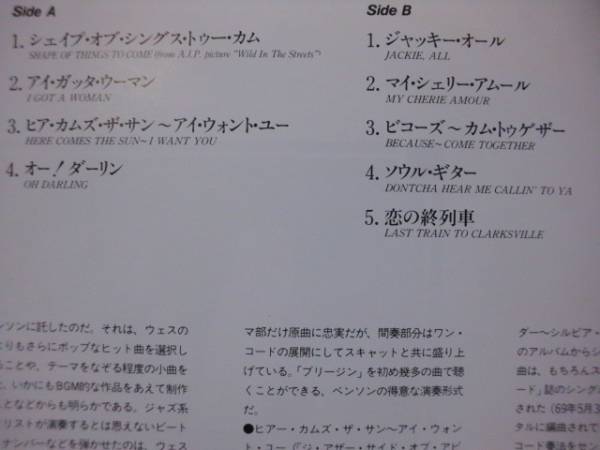 Side A
1. シェイプ・オブ・シングス・トゥー・カム
SHAPE OF THINGS TO COME (from A.I.P. picture "Wild In The Streets")
2. アイ・ガッタ・ウーマン
I GOT A WOMAN
3. ヒア・カムズ・ザ・サン〜アイ・ウォント・ユー
HERE COMES THE SUN~I WANT YOU
4. オー! ダーリン
OH DARLING
Side B
1. ジャッキー・オール
JACKIE, ALL
2. マイ・シェリー・アムール
MY CHERIE AMOUR
3. ビコーズ〜カム・トゥゲザー
BECAUSE~COME TOGETHER
4. ソウル・ギター
DONTCHA HEAR ME CALLIN' TO YA
5. 恋の終列車
LAST TRAIN TO CLARKSVILLE
ンソンに託したのだ。それは、ウェスの
よりもさらにポップなヒット曲を選択し
ることや、テーマをなぞる程度の小曲を
た、いかにもBGM的な作品をあえて制作
ことなどからも明らかである。ジャズ系
リストが演奏するとは思えないビート
ナンバーなどを弾かせたのは、ウェス
マ部だけ原曲に忠実だが、間奏部分はワン・
コードの展開にしてスキャットと共に盛り上
げている。「ブリージン」を初め幾多の曲で聴
くことができる、ベンソンの得意な演奏形式
だ。
●ヒアー・カムズ・ザ・サン〜アイ・ウォン
ト・ユー(「ジ・アザー・サイド・オブ・アビ
ダー〜シルビア・
のアルバムからシ
曲は、もちろんス
ード」誌のシング
された(69年5月3
タルに編曲されて
コード奏法をセン